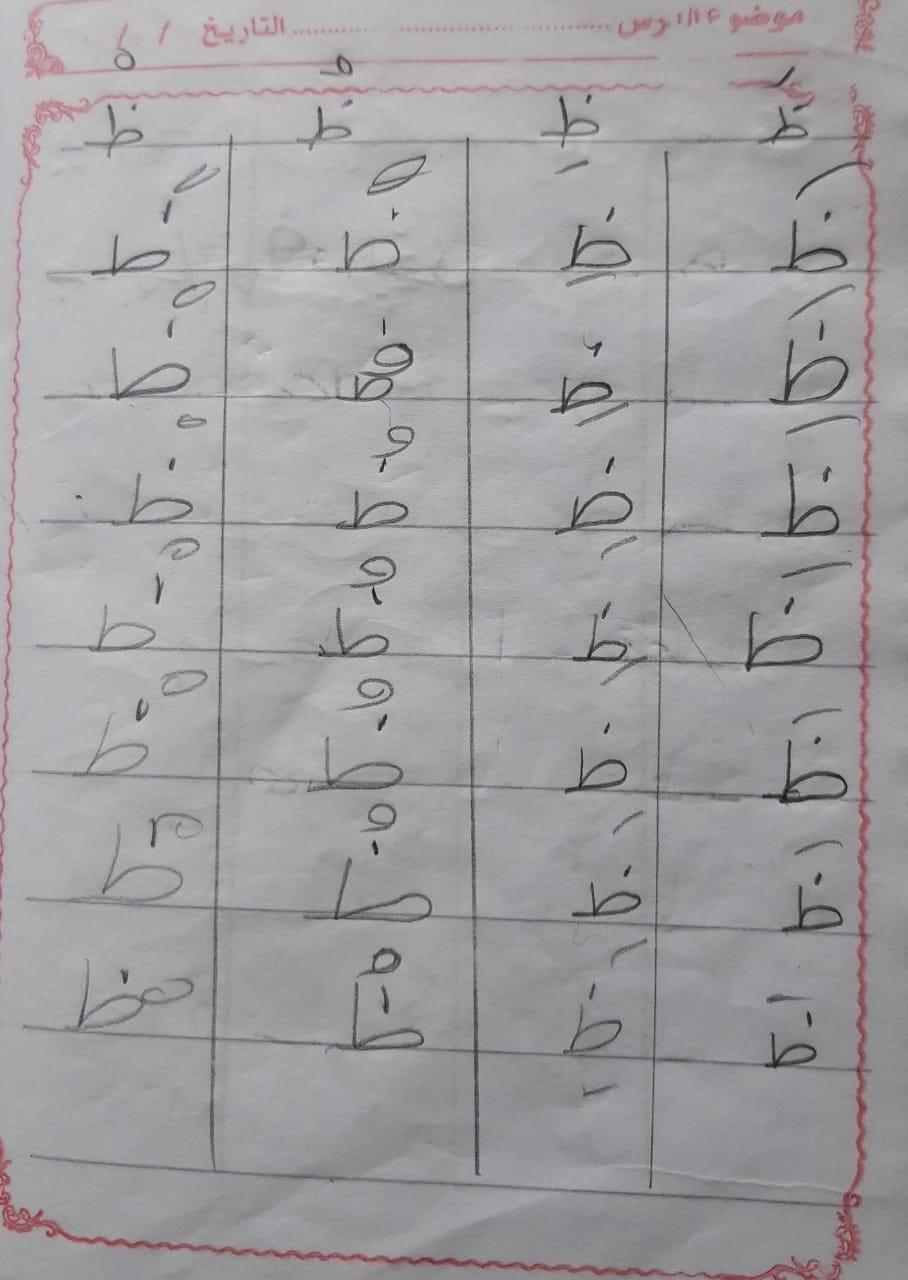 موضوع الدرس ........................ التاريخ / /
ظَ ظِ ظُ ظْ
ظَ ظِ ظُ ظْ
ظَ ظِ ظُ ظْ
ظَ ظِ ظُ ظْ
ظَ ظِ ظُ ظْ
ظَ ظِ ظُ ظْ
ظَ ظِ ظُ ظْ
ظَ ظِ ظُ ظْ